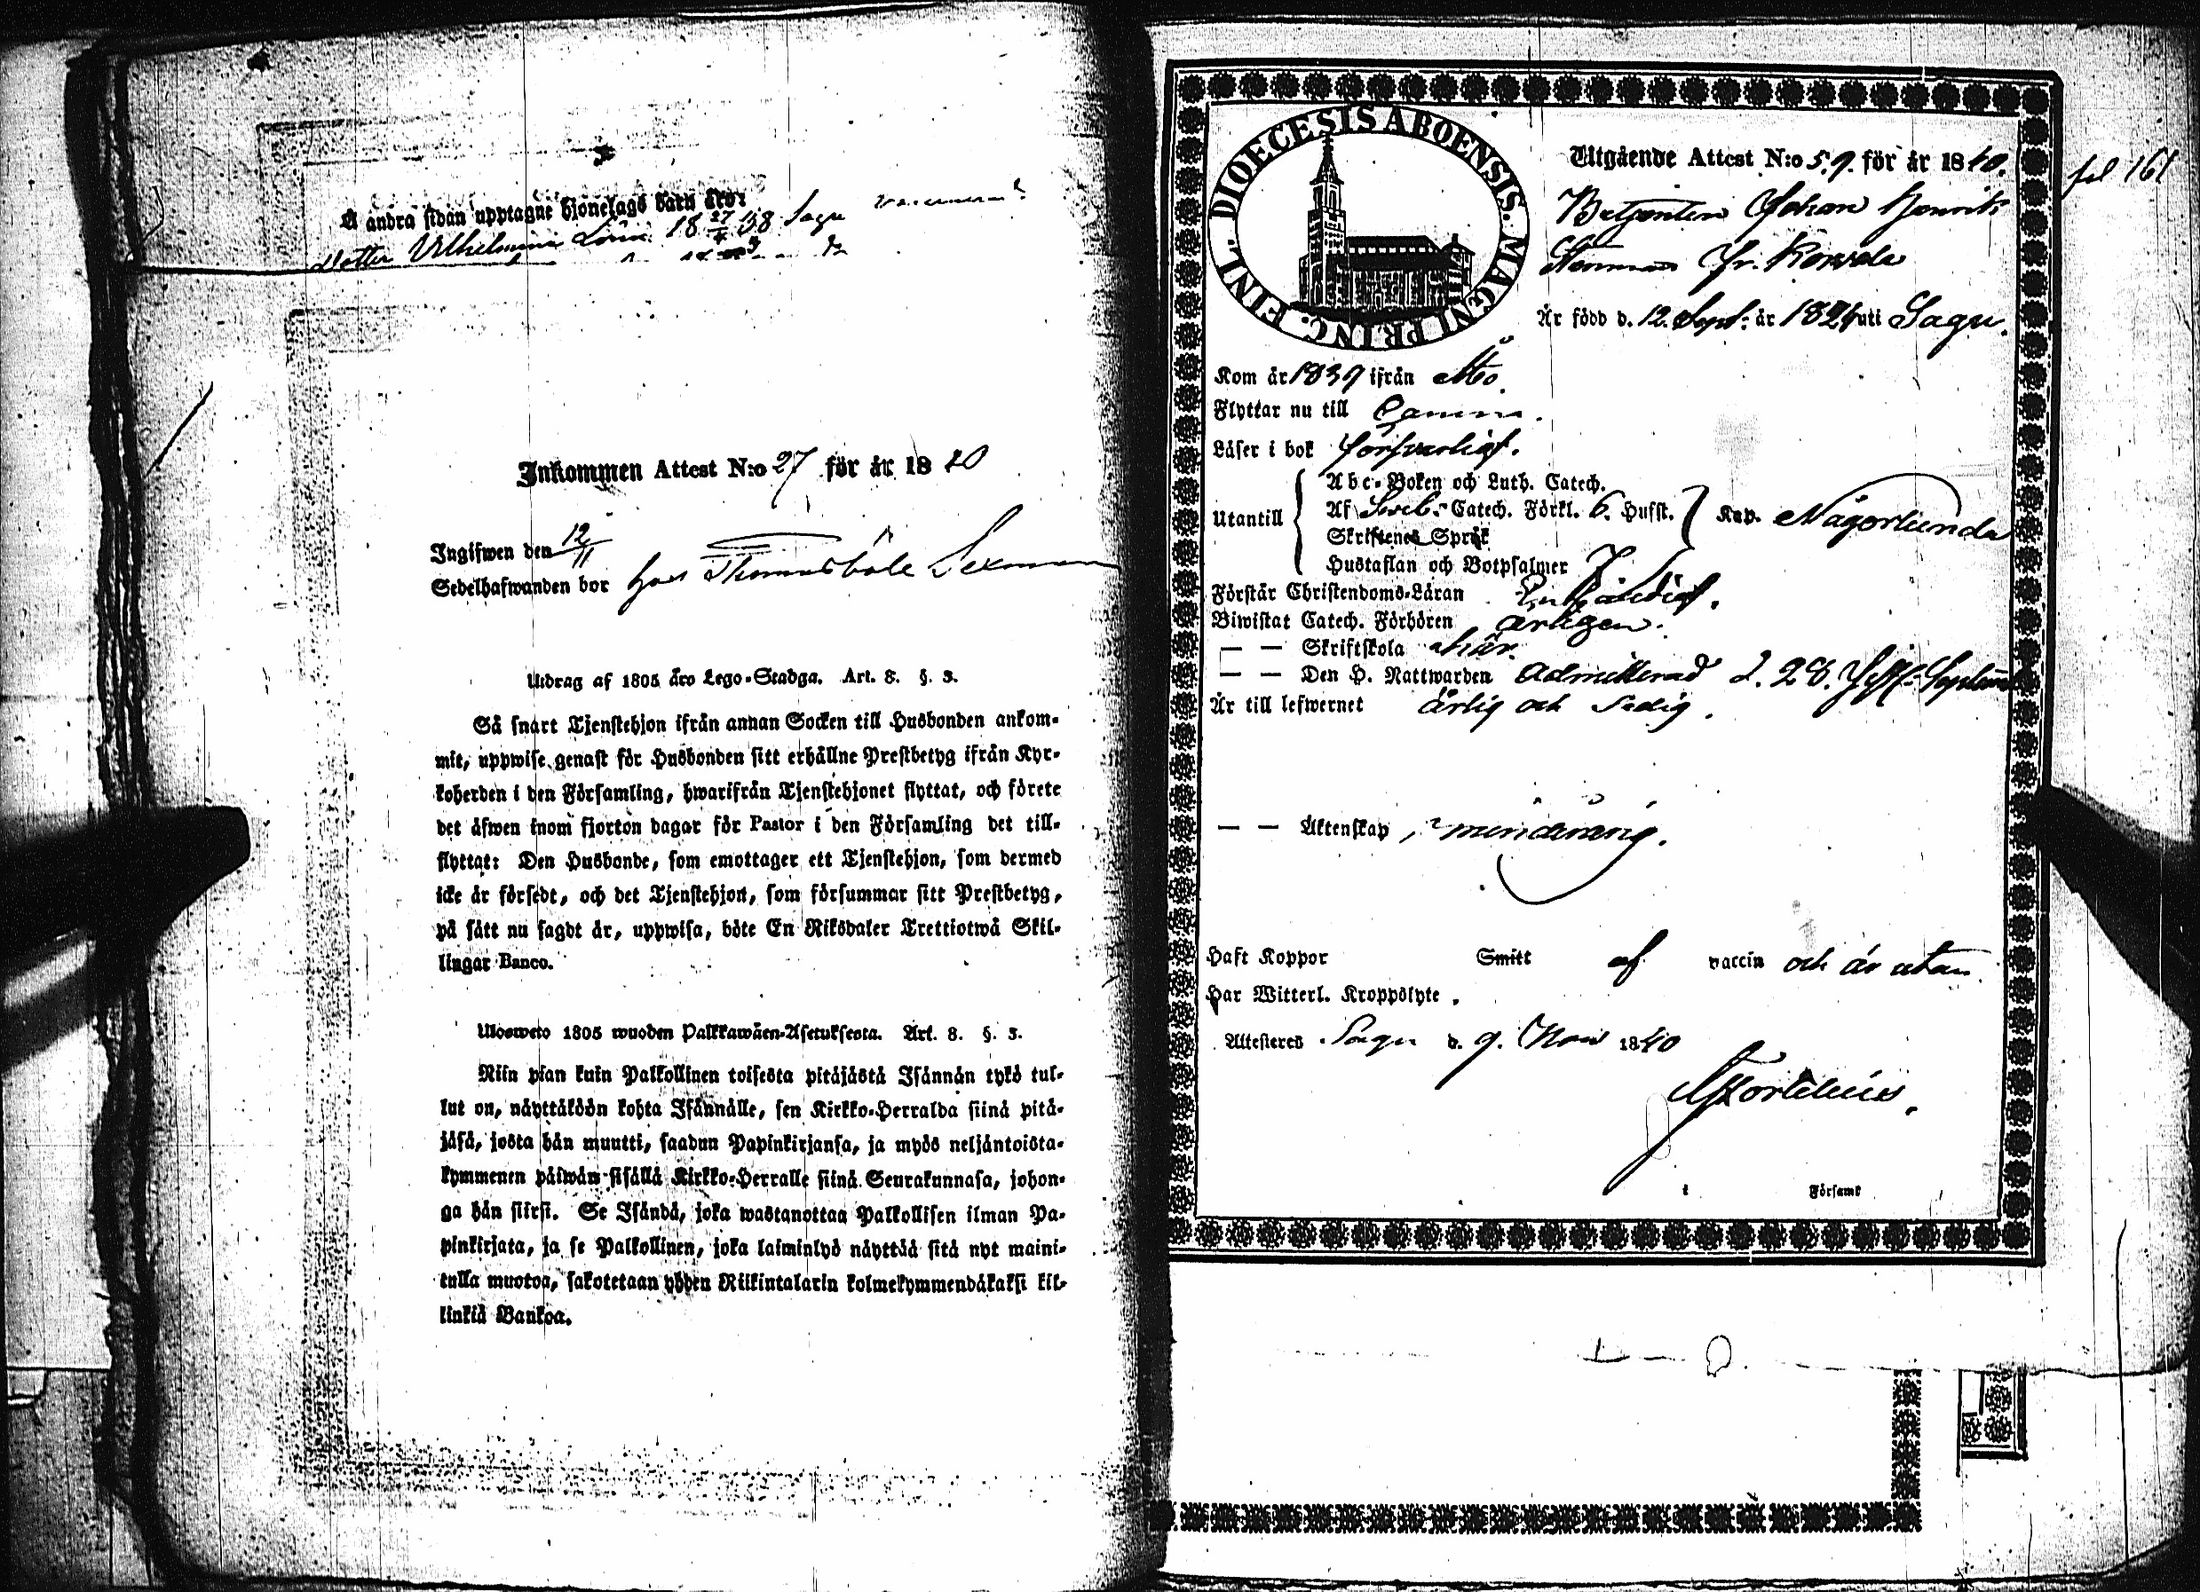 Å andra sidan upptagne hjonelags barn äro:
dotter Vilhelmina Lovisa 18 27/4 38 Sagu
Inkommen Attest N:o 27 för år 1840
Ingifwen den 12/11
Sedelhafwanden bor hos Thomasböle Sexman
Utdrag af 1805 års Lego-Stadga. Art. 8. §. 3.
Så snart Tjenstehjon ifrån annan Socken till Husbonden ankom-
mit, uppwise genast för Husbonden sitt erhållne Prestbetyg ifrån Kyr-
koherden i den Församling, hwarifrån Tjenstehjonet flyttat, och förete
det äfwen inom fjorton dagar för Pastor i den Församling det till-
flyttat: Den Husbonde, som emottager ett Tjenstehjon, som dermed
icke är försedt, och det Tjenstehjon, som försummar sitt Prestbetyg,
på sätt nu sagdt är, uppwisa, böte En Riksdaler Trettiotwå Skil-
lingar Banco.
Ulosweto 1805 wuoden Palkkawäen-Asetuksesta. Art. 8. §. 3.
Niin pian kuin Palkollinen toisesta pitäjästä Isännän tykö tul-
lut on, näyttäköön kohta Isännälle, sen Kirkko-Herralda siinä pitä-
jäsä, josta hän muutti, saadun Papinkirjansa, ja myös neljäntoista-
kymmenen päiwän sisällä Kirkko-Herralle siinä Seurakunnasa, johon-
ga hän siirsi. Se Isändä, joka wastanottaa Palkollisen ilman Pa-
pinkirjata, ja se Palkollinen, joka laiminlyö näyttää sitä nyt maini-
tulla muotoa, sakotetaan yhden Riikintalarin kolmekymmendäkaksi kil-
linkiä Bankoa.
DIOECESIS ABOENSIS. MAGNI PRINC. FINL.
Utgående Attest N:o 59. för år 1840.
fol 161
Betjenten Johan Henrik
fr. Korvela
Är född d. 12. Sept: år 1824 uti Sagu.
Kom år 1839 ifrån Åbo.
Flyttar nu till
Läser i bok försvarligt.
Abc-Boken och Luth. Catech.
Utantill Af Sveb. Catech. Förkl. 6. Hufst. Kap. Någorlunda
Skriftenes Språk
Hustaflan och Botpsalmer
Förstår Christendoms-Läran Enfaldigt.
Biwistat Catech. Förhören årligen.
— — Skriftskola här.
— — Den H. Nattwarden admitterad d. 28. Septem
Är till lefwernet ärlig och sedig.
— — Äktenskap, minderårig.
Haft Koppor Smitt af vaccin och är utan
Har Witterl. Kroppslyte.
Attesteres Sagu d. 9. Nov 1840
i Församl